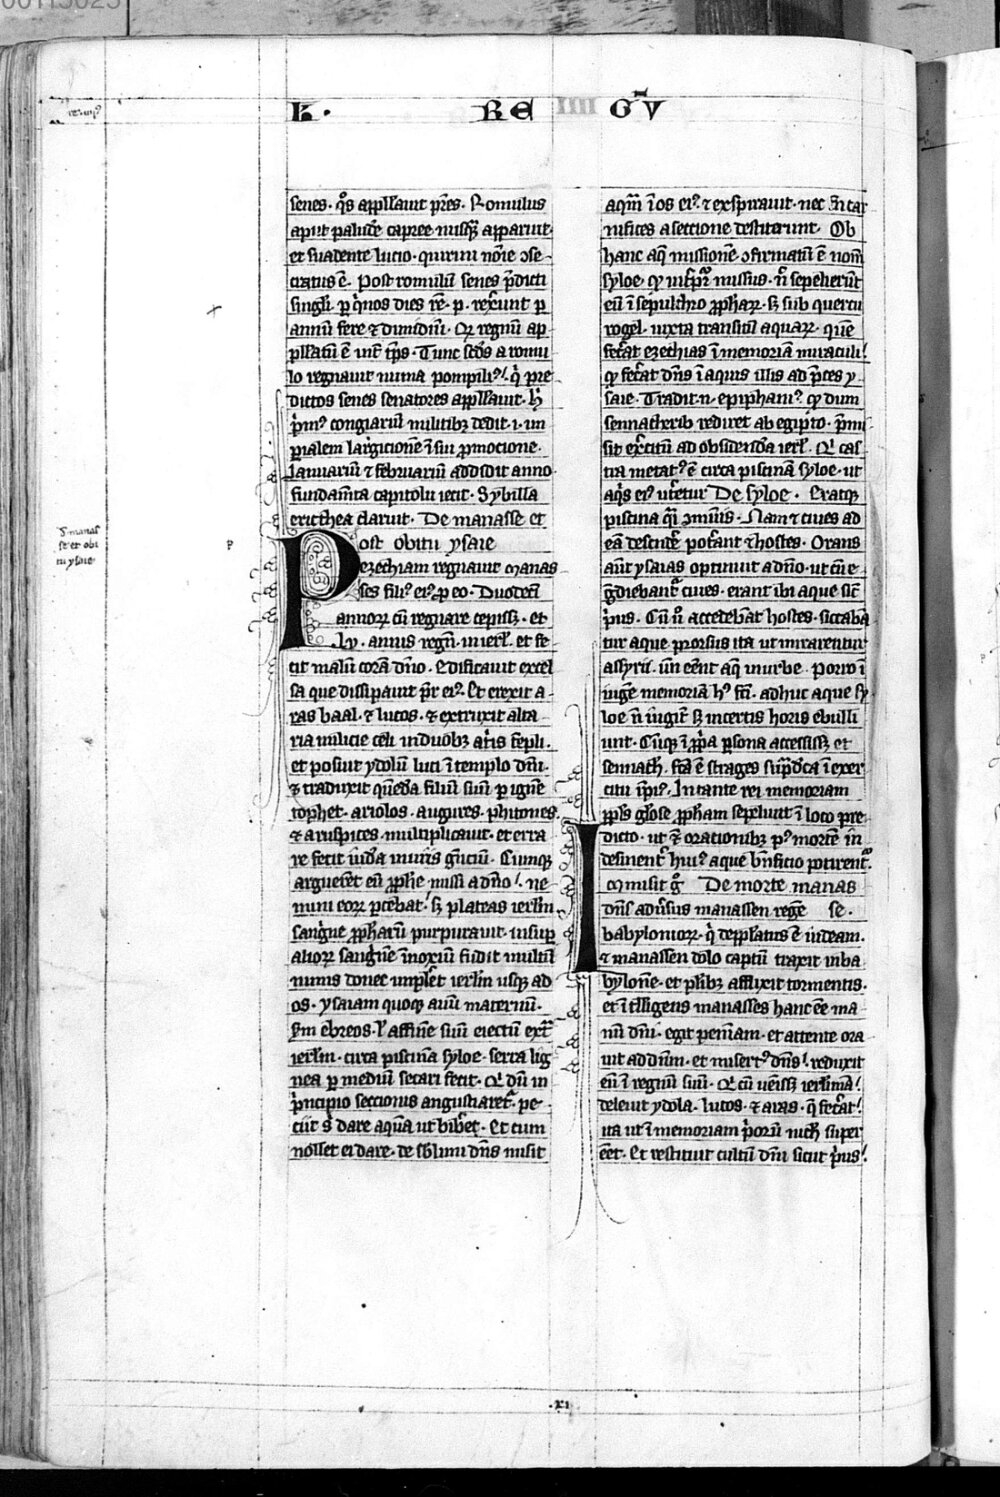 L. RE IIII GV̄
senes. q̄s appellauit p̄res. Romulus
aput palude capree nusq̄ apparuit.
et suadente lucio. quirini noīe ɔse
cratus ē. Post romulū senes p̄dicti
singli. p q̄nos dies re. p. rexerūt p
annū fere ⁊ dimidiū. Et regnū ap
pellatū ē int̄ tp̄s. Tunc sc̄ds a romu
lo regnauit numa pompili⁹. q̇ pre
dictos senes senatores appellauit. h̄
ṗm⁹ congiariū militibꝫ dedit .i. im
perialem largicionē ī sui p̄mocione.
Ianuariū ⁊ februariū addidit anno
fundam̄ta capitolii iecit. Sybilla
ericthea claruit. De manasse et
Post obitū ysaie
ezechiam regnauit manas
ses fili⁹ ei⁹ p eo. Duodeci
annoꝝ cū regnare cepissꝫ. et
lv. annis regn̄. in ierl̄. et fe
cit malū corā dn̄o. Edificauit excel
sa que dissipauit p̄r ei⁹. Et erexit a
ras baal. ⁊ lucos. ⁊ extruxit alta
ria milicie celi in duobꝫ at̄ris tēpli.
et posuit ydolū luci ī templo dn̄i.
⁊ traduxit quēdā filiū suū p ignē
tophet. ariolos. augures. phitones
⁊ aruspices. multiplicauit. et erra
re fecit iudā
arguerēt eū ꝓphe missi a dn̄o. ne
mini eoꝝ p̄cebat. sꝫ plateas ierl̄m.
sanguīe ꝓphaꝝ purpurauit. insup
alioꝝ sanguinē īnoxiū fudit multū
nimis donec impler̄t ierl̄m usqꝫ ad
os. ysaiam quoqꝫ auū maternū.
s̄m ebreos. l̄ affinē suū eiectū ext̄
ierl̄m. circa piscinā syloe. serra lig
nea p mediū secari fecit. Et dū in
ṗncipio sectionis angustiaret̄. pe
ciit s̄ dare aquā ut biberꝫ. Et cum
nollet ei dare. de sblimi dn̄s misit
aquā ī os ei⁹. ⁊ exspirauit. nec t̄n car
nifices a sectione destiterunt. Ob
hanc aq̄ missionē ɔfirmatū ē nom̄
syloe. qꝫ īterp̄tr̄ missus. n̄ sepelierūt
eū ī sepulchro ꝓphaꝝ. sꝫ sub quercu
rogel. iuxta transitū aquaꝝ. quē
fecat ezechias ī memoriā miraculi.
qꝫ fecat dn̄s ī aquis illis ad p̄ces y
saie. Tradit .n. epiphani⁹. qꝫ dum
sennacherib rediret ab egipto. p̄mi
sit ex̄citū ad obsidendā ierl̄. Et cas
tra metat⁹ ē circa piscinā syloe. ut
aq̄s ei⁹ ut̄etur De syloe. Eratqꝫ
piscina q̄i ɔmunis. Nam ⁊ ciues ad
eā descēdē pot̄ant ⁊ hostes. Orans
aūt ysaias optinuit a dn̄o. ut cū e
g̊diebant̄ ciues. erant ibi aque sic̄
ṗus. Cū ū accedebāt hostes. siccabā
tur aque prorsus ita ut mirarentur
assyrii. un̄ eēnt aq̄ in urbe. Porro ī
iugē memoriā h⁹ fc̄i. adhuc aque sy
loe n̄ iugit̄ sꝫ incertis horis ebulli
unt. Cūqꝫ ī p̄a psona accessissꝫ et
sennach̄. fc̄a ē strages sup̄dc̄a ī exer
citu ip̄i⁹. In tante rei memoriam
ppls gl̄ose ꝓpham sepeliuit ī loco pre
dicto. ut ⁊ orationibꝫ p⁹ mortē in
desinent̄ hui⁹ aque bn̄ficio potirent̄.
Inmisit g̊ De morte manas
dn̄s adu̇sus manassen regē se.
babylonioꝝ. q̇ depplatus ē iudeam.
⁊ manassen dolo captū traxit in ba
bylonē. et plibꝫ afflixit tormentis.
et ītelligens manasses hanc eē ma
nū dn̄i. egit pen̄iam. et attente ora
uit ad dn̄m. et misert⁹ dn̄s. reduxit
eū ī regnū suū. Et cū uēissꝫ ierl̄imā.
deleuit ydola. lucos. ⁊ aras. q̄ fecat.
ita ut ī memoriam ṗoꝝ nich̄ super
eēt. Et restituit cultū dn̄i sicut ṗus.
manas
se et obi
tu ysaie
p
.xi.